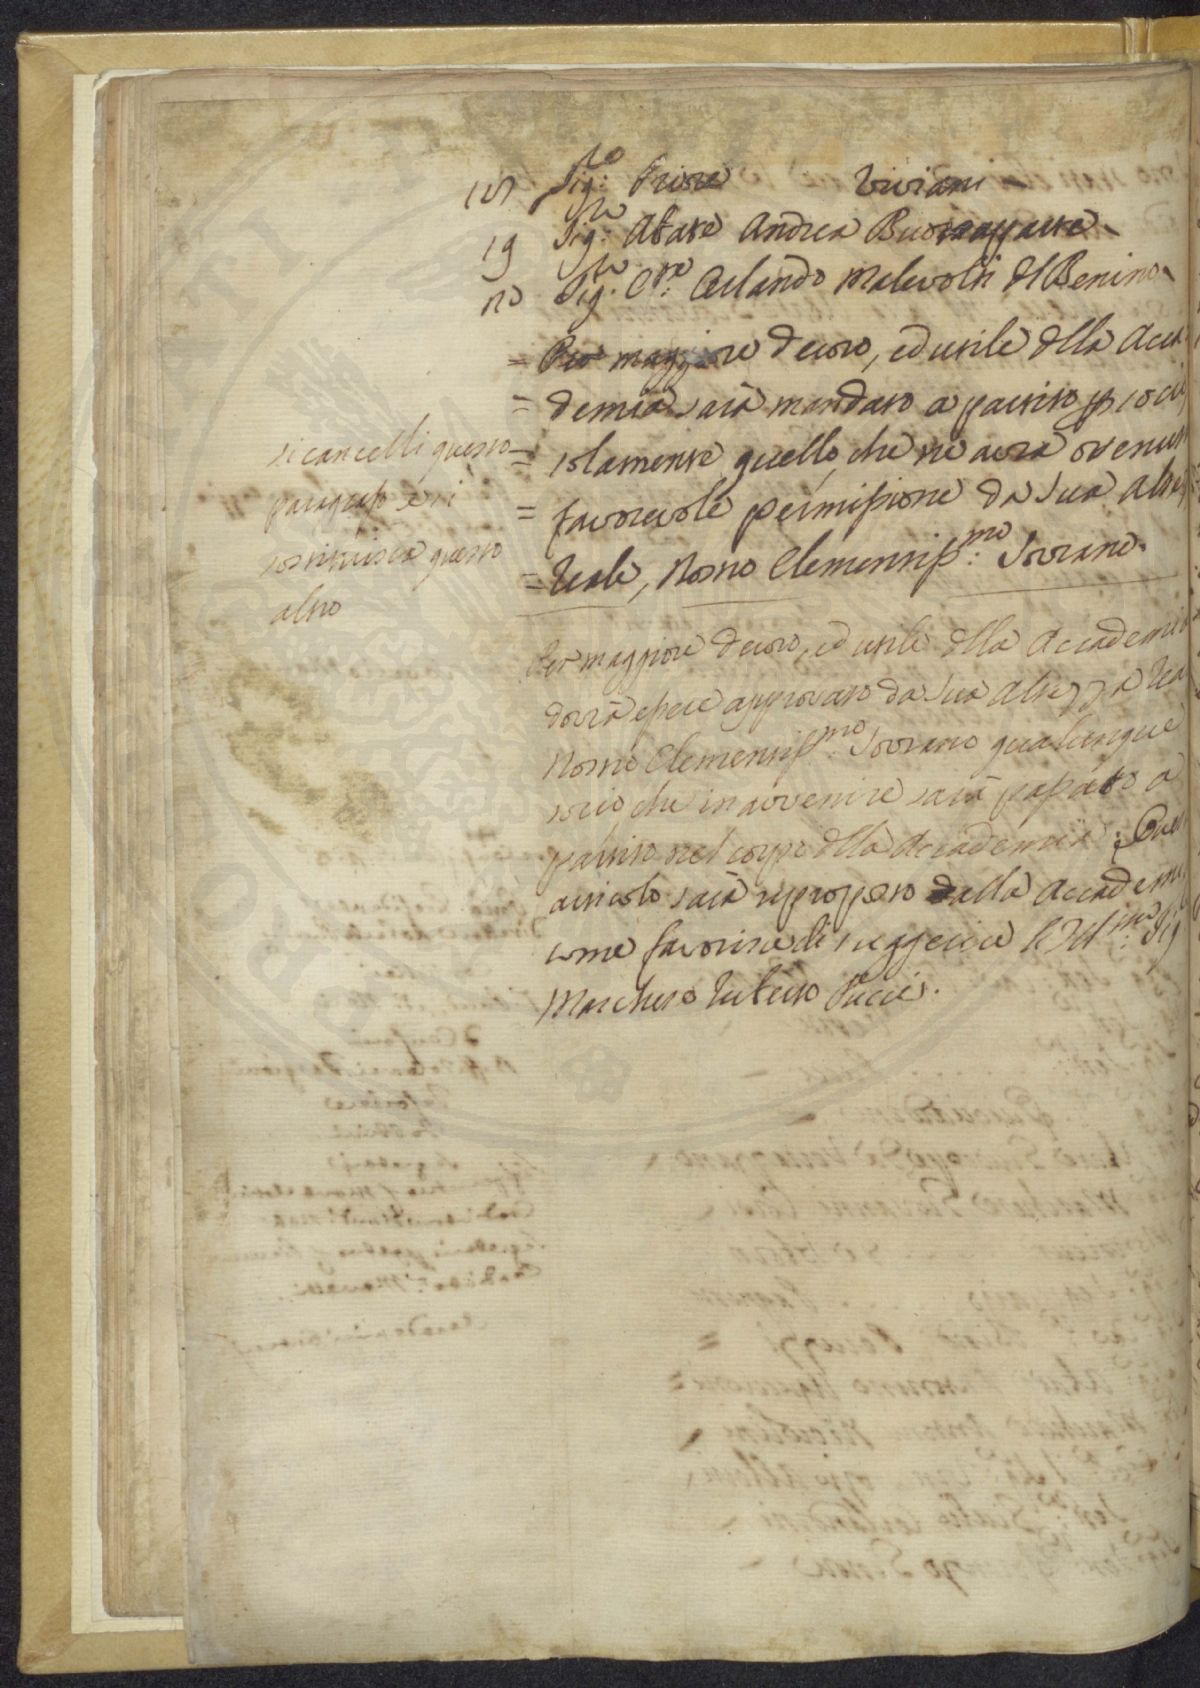 18 Sig:re Priore Viviani
19 Sig:re Abate Andrea Buonapparte
20 Sig:re C:re Orlando Malevolti del Benino
= Per maggiore decoro, ed utile della Acca
= demia sarà mandato a partito p socio
= solamente quello, che ne avrà ottenut
= favorevole permissione da Sua Altez
= Reale, Nostro Clementiss:mo Sovrano.
si cancelli questo
paragrafo e si
sostituisca questo
altro
Per maggiore decoro, ed utile della Accademia
dovrà essere approvato da Sua Altezza Rea
Nostro Clementiss:mo Sovrano qualunque
socio che in avvenire sarà passato a
partito nel corpo della Accademia:
articolo sarà riproposto dalla Accademi
come favorisce di suggerire l'Ill:mo Sig
Marchese Ruberto Pucci.